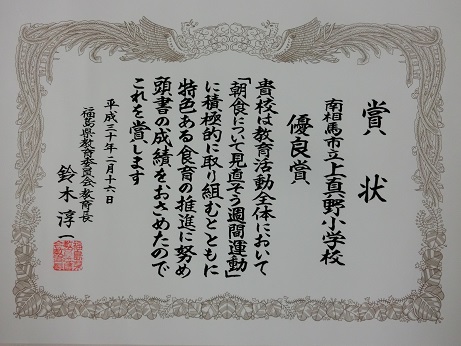 賞状
南相馬市立上真野小学校
優良賞
貴校は教育活動全体において
「朝食について見直そう週間運動」
に積極的に取り組むとともに
特色ある食育の推進に努め
頭書の成績をおさめたので
これを賞します
平成三十年二月十六日
福島県教育委員会教育長
鈴木淳一